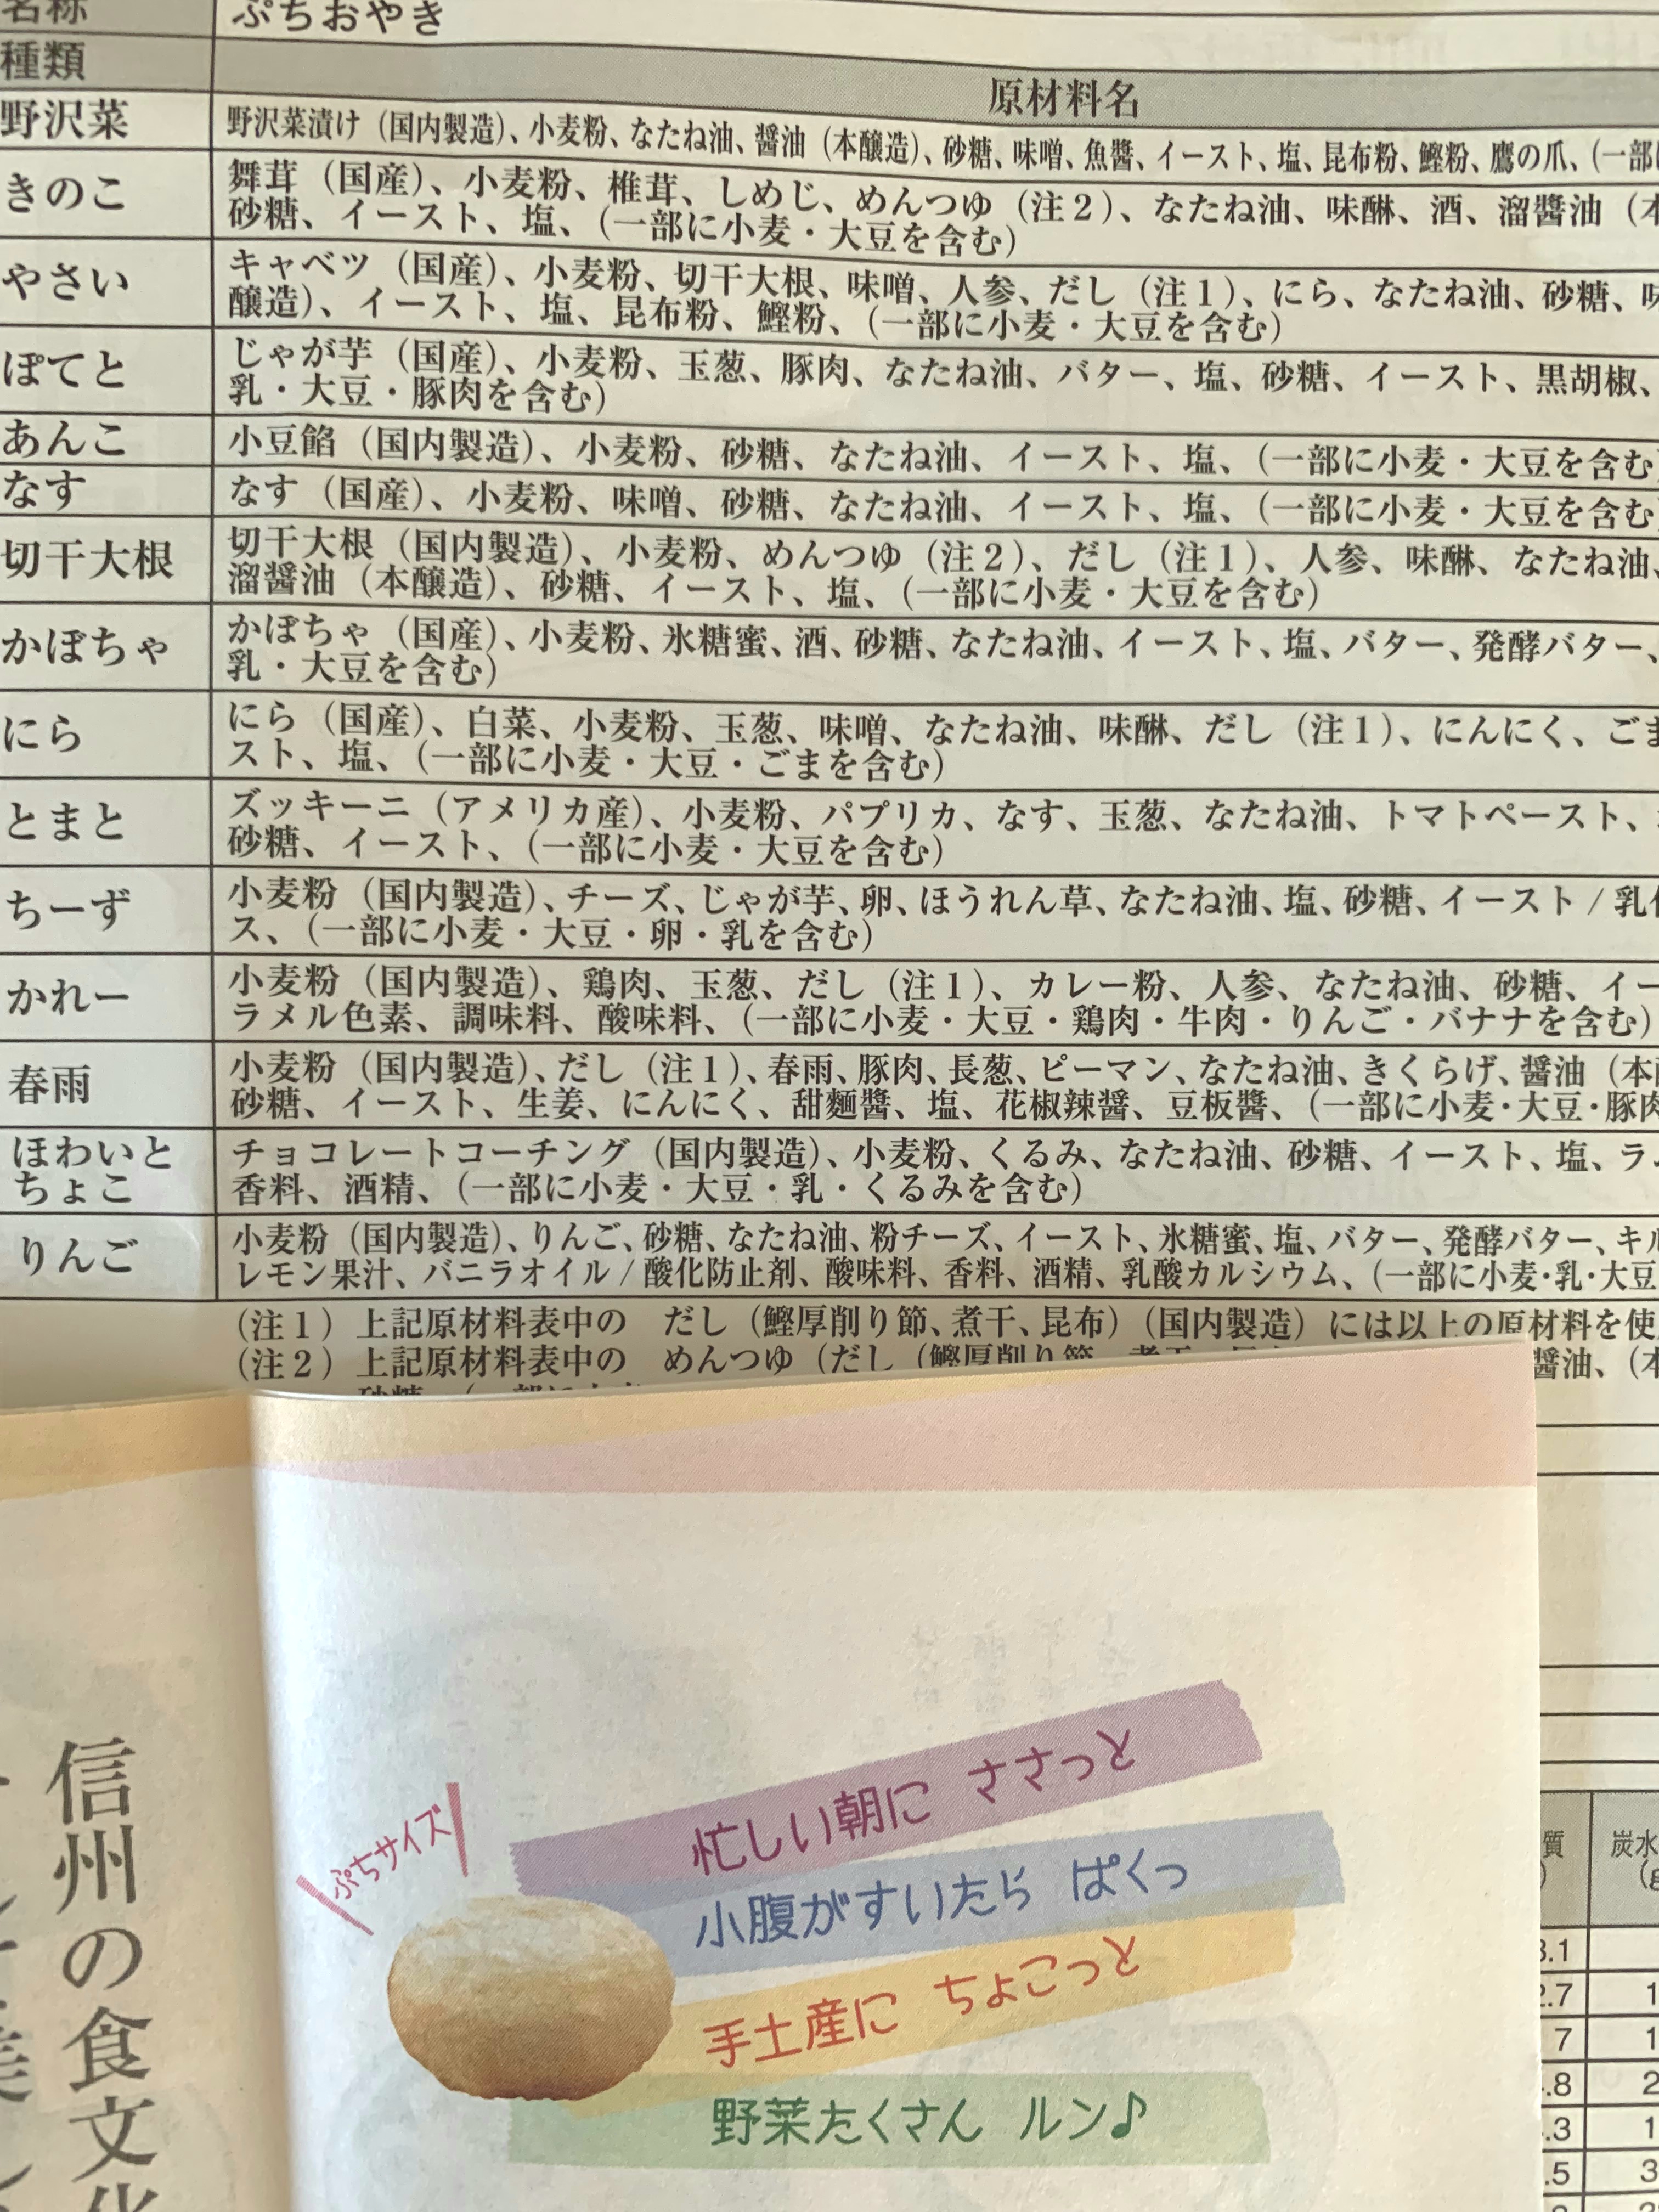 名称 ぷちおやき
種類 原材料名
野沢菜 野沢菜漬け（国内製造）、小麦粉、なたね油、醤油（本醸造）、砂糖、味噌、魚醬、イースト、塩、昆布粉、鰹粉、鷹の爪、（一部
きのこ 舞茸（国産）、小麦粉、椎茸、しめじ、めんつゆ（注２）、なたね油、味醂、酒、溜醬油（本
砂糖、イースト、塩、（一部に小麦・大豆を含む）
やさい キャベツ（国産）、小麦粉、切干大根、味噌、人参、だし（注１）、にら、なたね油、砂糖、味
醸造）、イースト、塩、昆布粉、鰹粉、（一部に小麦・大豆を含む）
ぽてと じゃが芋（国産）、小麦粉、玉葱、豚肉、なたね油、バター、塩、砂糖、イースト、黒胡椒、
乳・大豆・豚肉を含む）
あんこ 小豆餡（国内製造）、小麦粉、砂糖、なたね油、イースト、塩、（一部に小麦・大豆を含む）
なす なす（国産）、小麦粉、味噌、砂糖、なたね油、イースト、塩、（一部に小麦・大豆を含む
切干大根 切干大根（国内製造）、小麦粉、めんつゆ（注２）、だし（注１）、人参、味醂、なたね油、
溜醤油（本醸造）、砂糖、イースト、塩、（一部に小麦・大豆を含む）
かぼちゃ かぼちゃ（国産）、小麦粉、氷糖蜜、酒、砂糖、なたね油、イースト、塩、バター、発酵バター、
乳・大豆を含む）
にら にら（国産）、白菜、小麦粉、玉葱、味噌、なたね油、味醂、だし（注１）、にんにく、ごま
スト、塩、（一部に小麦・大豆・ごまを含む）
とまと ズッキーニ（アメリカ産）、小麦粉、パプリカ、なす、玉葱、なたね油、トマトペースト、
砂糖、イースト、（一部に小麦・大豆を含む）
ちーず 小麦粉（国内製造）、チーズ、じゃが芋、卵、ほうれん草、なたね油、塩、砂糖、イースト / 乳化
ス、（一部に小麦・大豆・卵・乳を含む）
かれー 小麦粉（国内製造）、鶏肉、玉葱、だし（注１）、カレー粉、人参、なたね油、砂糖、イー
ラメル色素、調味料、酸味料、（一部に小麦・大豆・鶏肉・牛肉・りんご・バナナを含む）
春雨 小麦粉（国内製造）、だし（注１）、春雨、豚肉、長葱、ピーマン、なたね油、きくらげ、醤油（本醸
砂糖、イースト、生姜、にんにく、甜麵醬、塩、花椒辣醤、豆板醬、（一部に小麦・大豆・豚肉
ほわいと
ちょこ チョコレートコーチング（国内製造）、小麦粉、くるみ、なたね油、砂糖、イースト、塩、ラ
香料、酒精、（一部に小麦・大豆・乳・くるみを含む）
りんご 小麦粉（国内製造）、りんご、砂糖、なたね油、粉チーズ、イースト、氷糖蜜、塩、バター、発酵バター、キル
レモン果汁、バニラオイル / 酸化防止剤、酸味料、香料、酒精、乳酸カルシウム、（一部に小麦・乳・大豆
（注１）上記原材料表中の だし（鰹厚削り節、煮干、昆布）（国内製造）には以上の原材料を使
（注２）上記原材料表中の めんつゆ（だし（鰹厚削り節 醤油、（本
ぷちサイズ
忙しい朝に ささっと
小腹がすいたら ぱくっ
手土産に ちょこっと
野菜たくさん ルン♪
信州の食文化
質 炭水
.7 1
7 1
.8 2
.3 1
.5 3